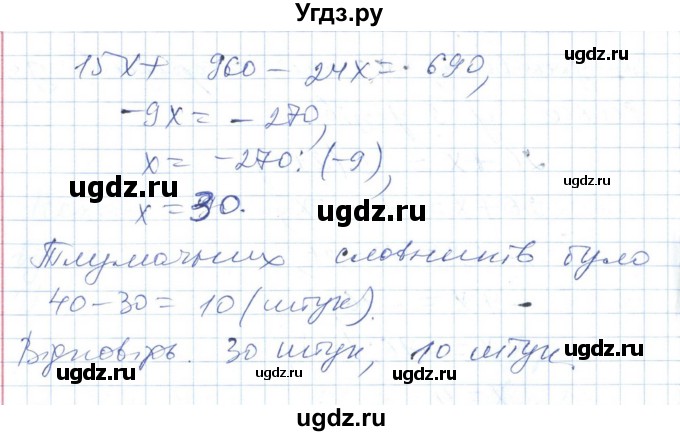 Угдз.ру
15x + 960 - 24x = 690,
-9x = -270,
x = -270 : (-9),
x = 30.
Тлумачних словників було
40 - 30 = 10 (штук).
Відповідь. 30 штук, 10 штук.
ugdz.ru
ugdz.ru
ugdz.ru
ugdz.ru
ugdz.ru
ugdz.ru
ugdz.ru
ugdz.ru
ugdz.ru
ugdz.ru
ugdz.ru
ugdz.ru